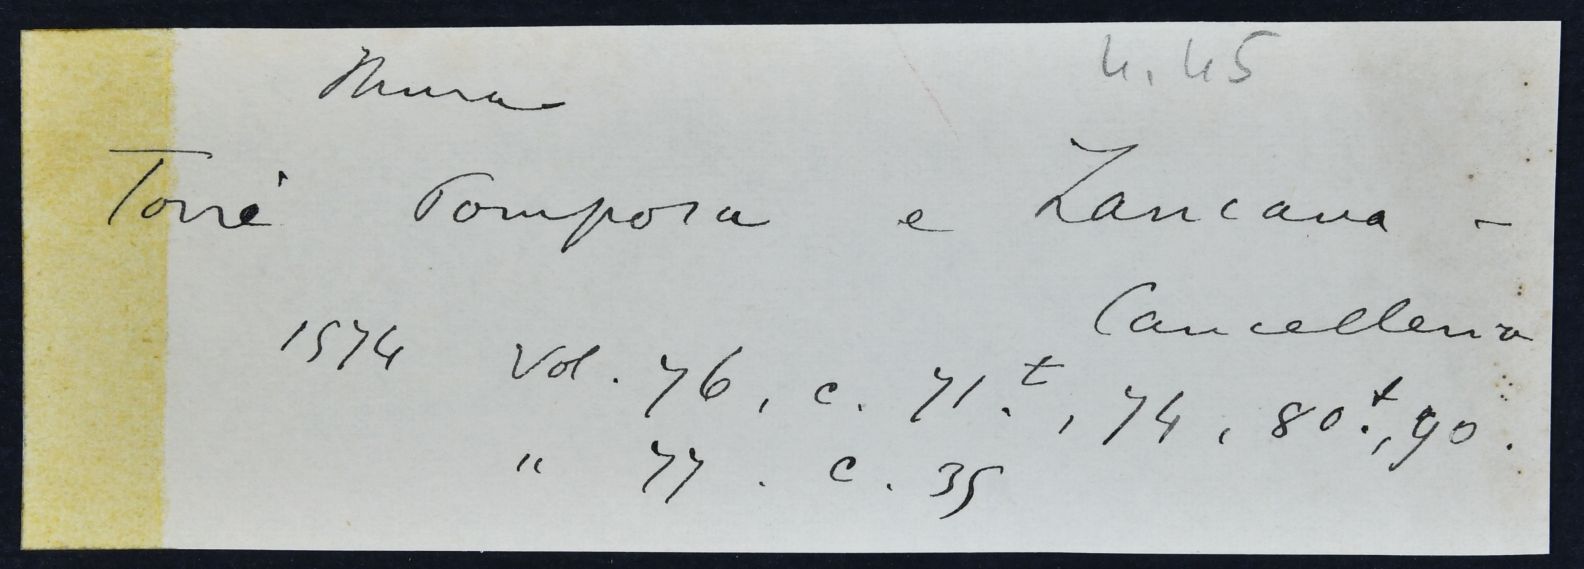 4.45
Mura
Torre Pomposa e Zancana -
Cancelleria
1574 Vol. 76, c. 71.t, 74, 80.t, 90.
" 77. c. 35